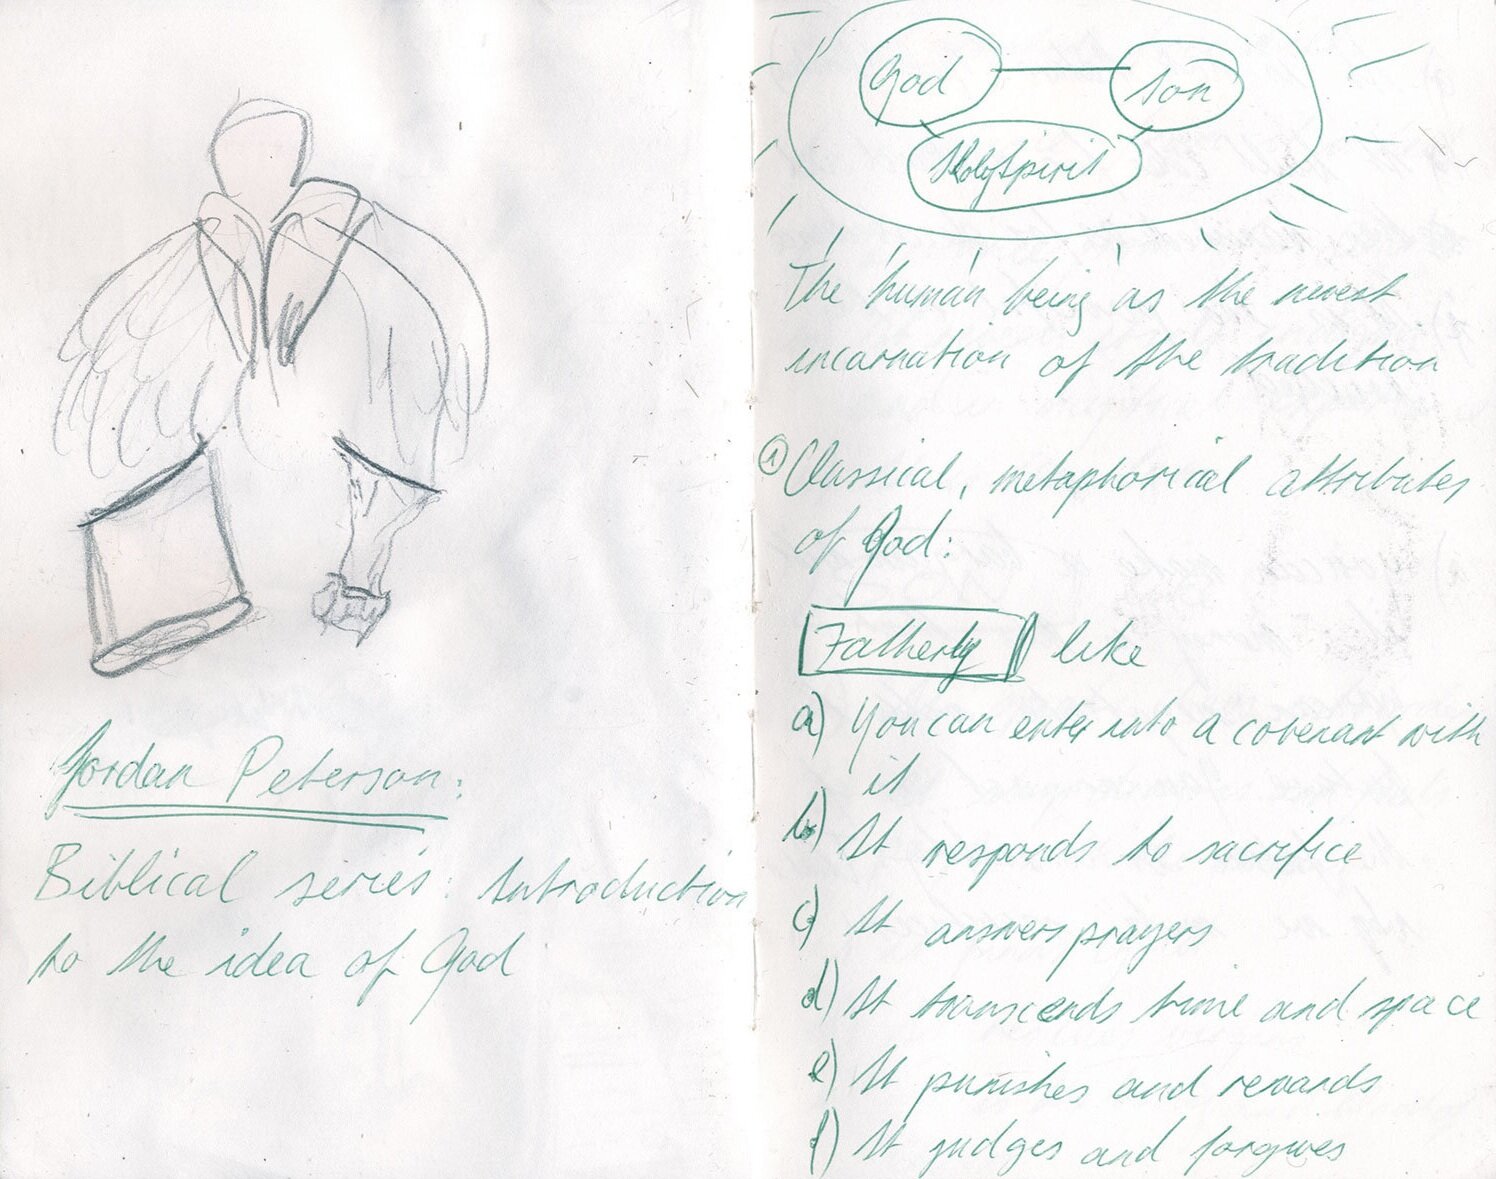 Jordan Peterson:
Biblical series: Introduction
to the idea of God
God
Son
Holy Spirit
The human being as the newest
incarnation of the tradition
1 Classical, metaphorical attributes
of God:
Fatherly like
a) You can enter into a covenant with
it
b) It responds to sacrifice
c) It answers prayers
d) It transcends time and space
e) It punishes and rewards
f) It judges and forgives